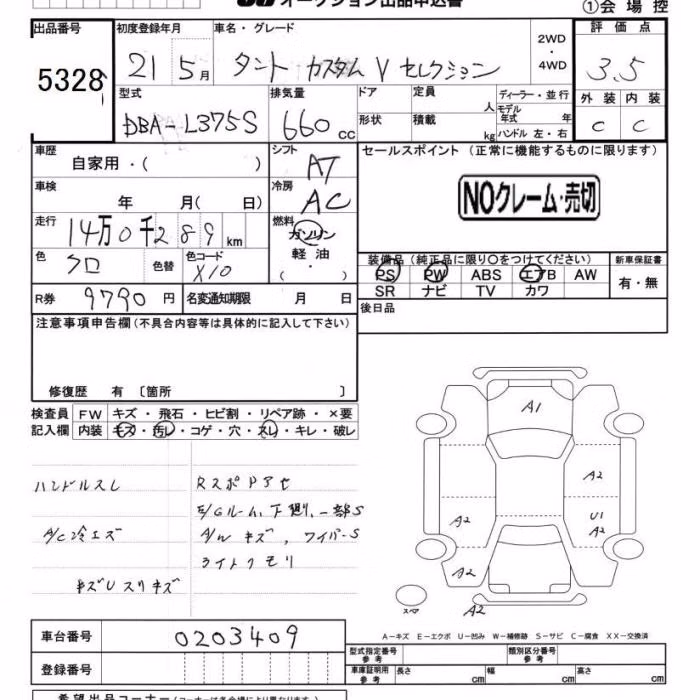 オークション出品申込書
①会場控
出品番号 初度登録年月 車名・グレード 2WD・4WD 評価点
5328 21 5月 タント カスタム V セレクション 3.5
型式 排気量 ドア 定員 人 ディーラー・並行 外装 内装
DBA-L375S 660cc 形状 積載 kg モデル年式 年 C C
ハンドル 左・右
車歴 自家用・( ) シフト AT セールスポイント (正常に機能するものに限ります)
車検 年 月( 日) 冷房 AC NOクレーム・売切
走行 14万0千289km 燃料 ガソリン・軽油・( )
色 クロ 色替 色コード X10 装備品(純正品に限り〇をつけてください) 新車保証書
PS PW ABS エアB AW 有・無
SR ナビ TV カワ
R券 9790円 名変通知期限 月 日 後日品
注意事項申告欄(不具合内容等は具体的に記入して下さい)
修復歴 有 〔箇所 〕
検査員 FW キズ・飛石・ヒビ割・リペア跡・×要
記入欄 内装 キズ・汚レ・コゲ・穴・スレ・キレ・破レ
ハンドルスレ RスポPアセ
E/Gルーム、下廻、一部S
A/C冷エズ A/Wキズ、ワイパーS
ライトクモリ
キズUスリキズ
A1
A2
A2 U1
A2
A2
スペア A2
A-キズ E-エクボ U-凹み W-補修跡 S-サビ C-腐食 XX-交換済
車台番号 0203409
型式指定番号 参考 類別区分番号 参考
登録番号 車庫証明用 参考 長さ cm 幅 cm 高さ cm
希望出品コーナー